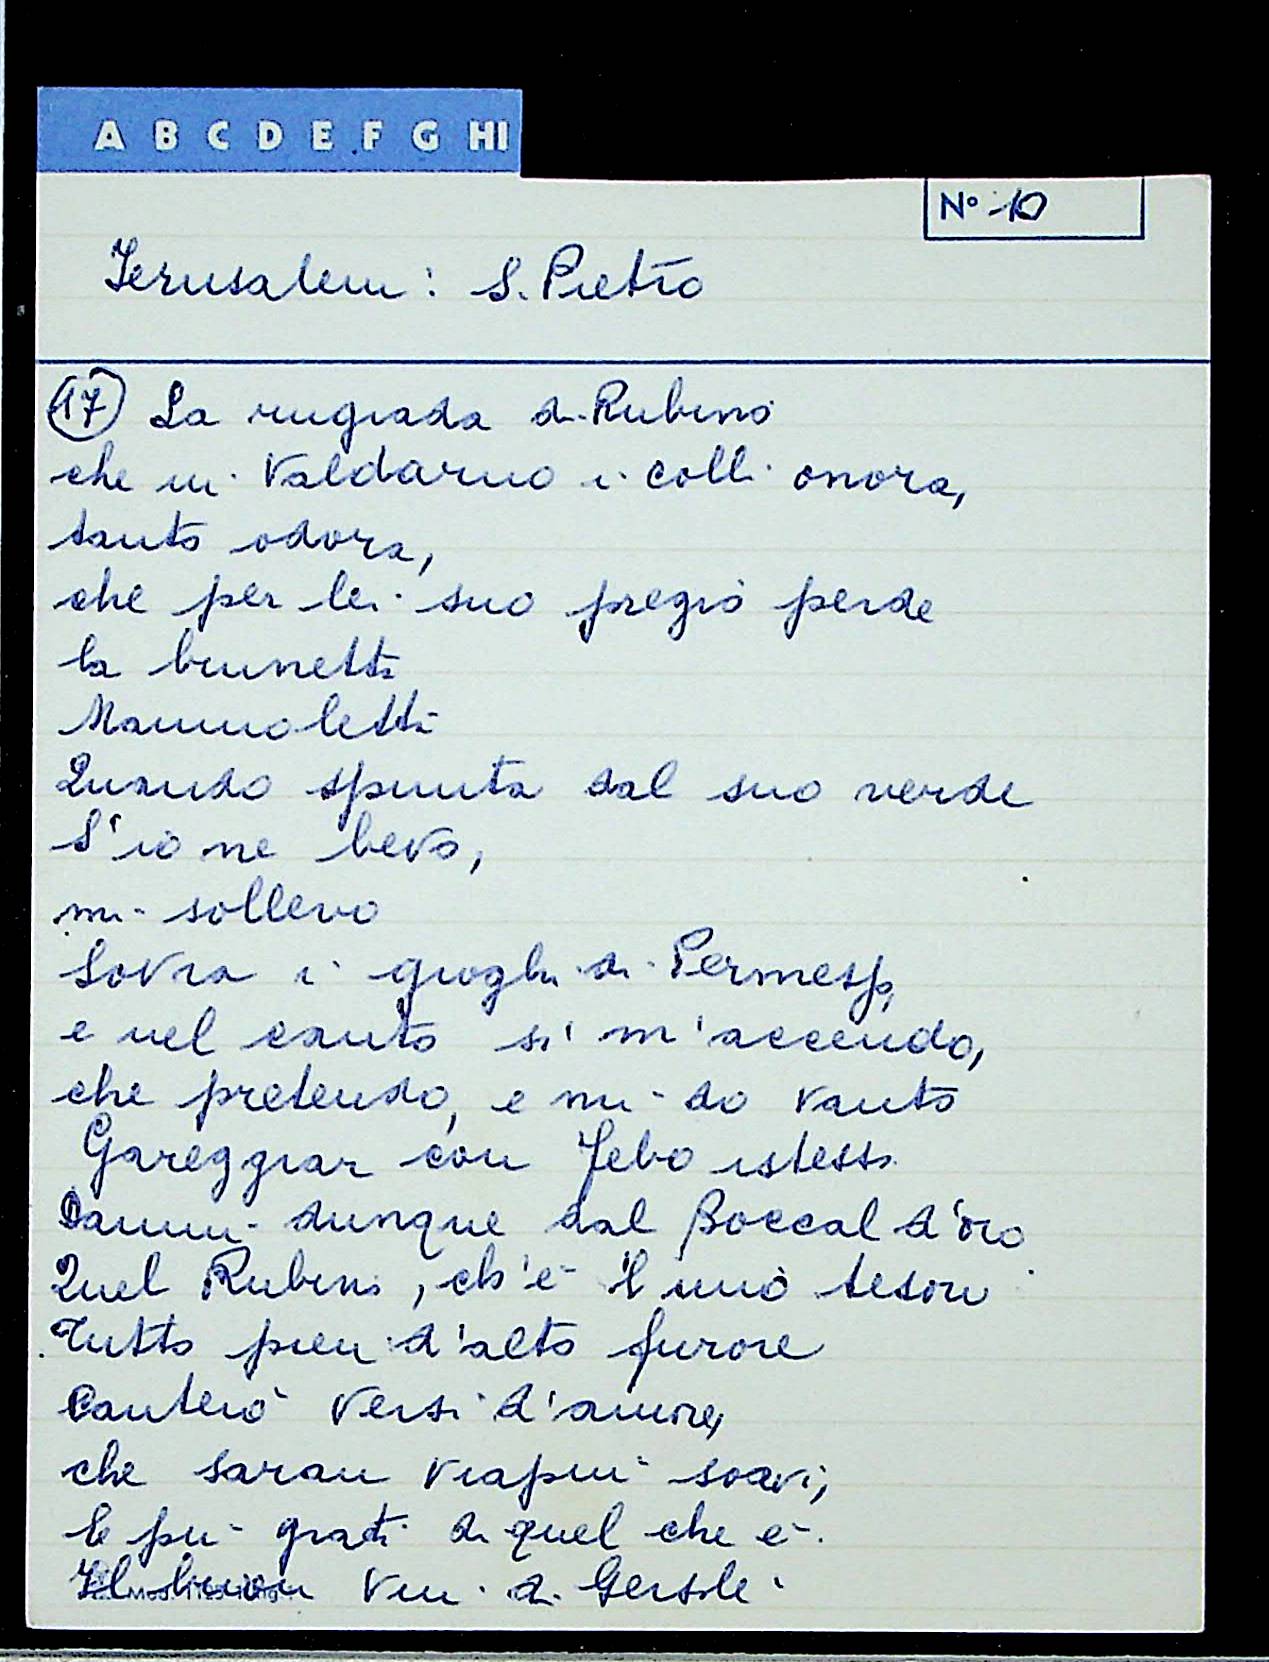 A B C D E F G HI
N° 10
Jerusalem: S. Pietro
17 La rugiada di Rubino
che in Valdarno i colli onora,
tanto odora,
che per lei suo pregio perde
la brunetta
Mammoletta
Quando spunta dal suo verde
S'io ne bevo,
mi sollevo
Sovra i gioghi di Permesso,
e nel canto si' m'accendo,
che pretendo, e mi do vanto
Gareggiar con Febo istesso
Dammi dunque dal Boccal d'oro
Quel Rubino, ch'è il mio tesoro
Tutto pien d'alto furore
Canterò versi d'amore,
che saran viapiù soavi,
E più grati di quel che è
Il buon vin di Gersolè